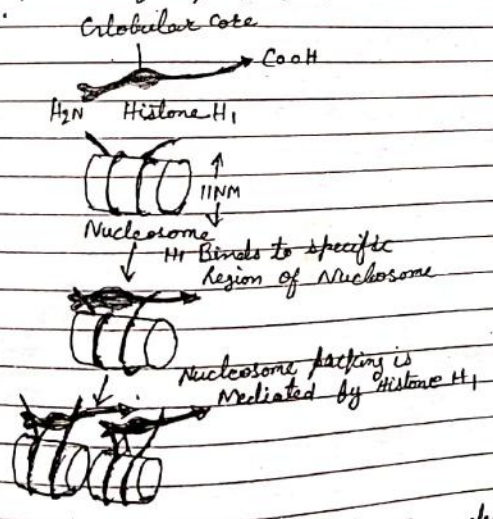 Globular core
COOH
H2N Histone H1
11NM
Nucleosome
H1 Binds to specific
Region of Nucleosome
Nucleosome packing is
Mediated by Histone H1